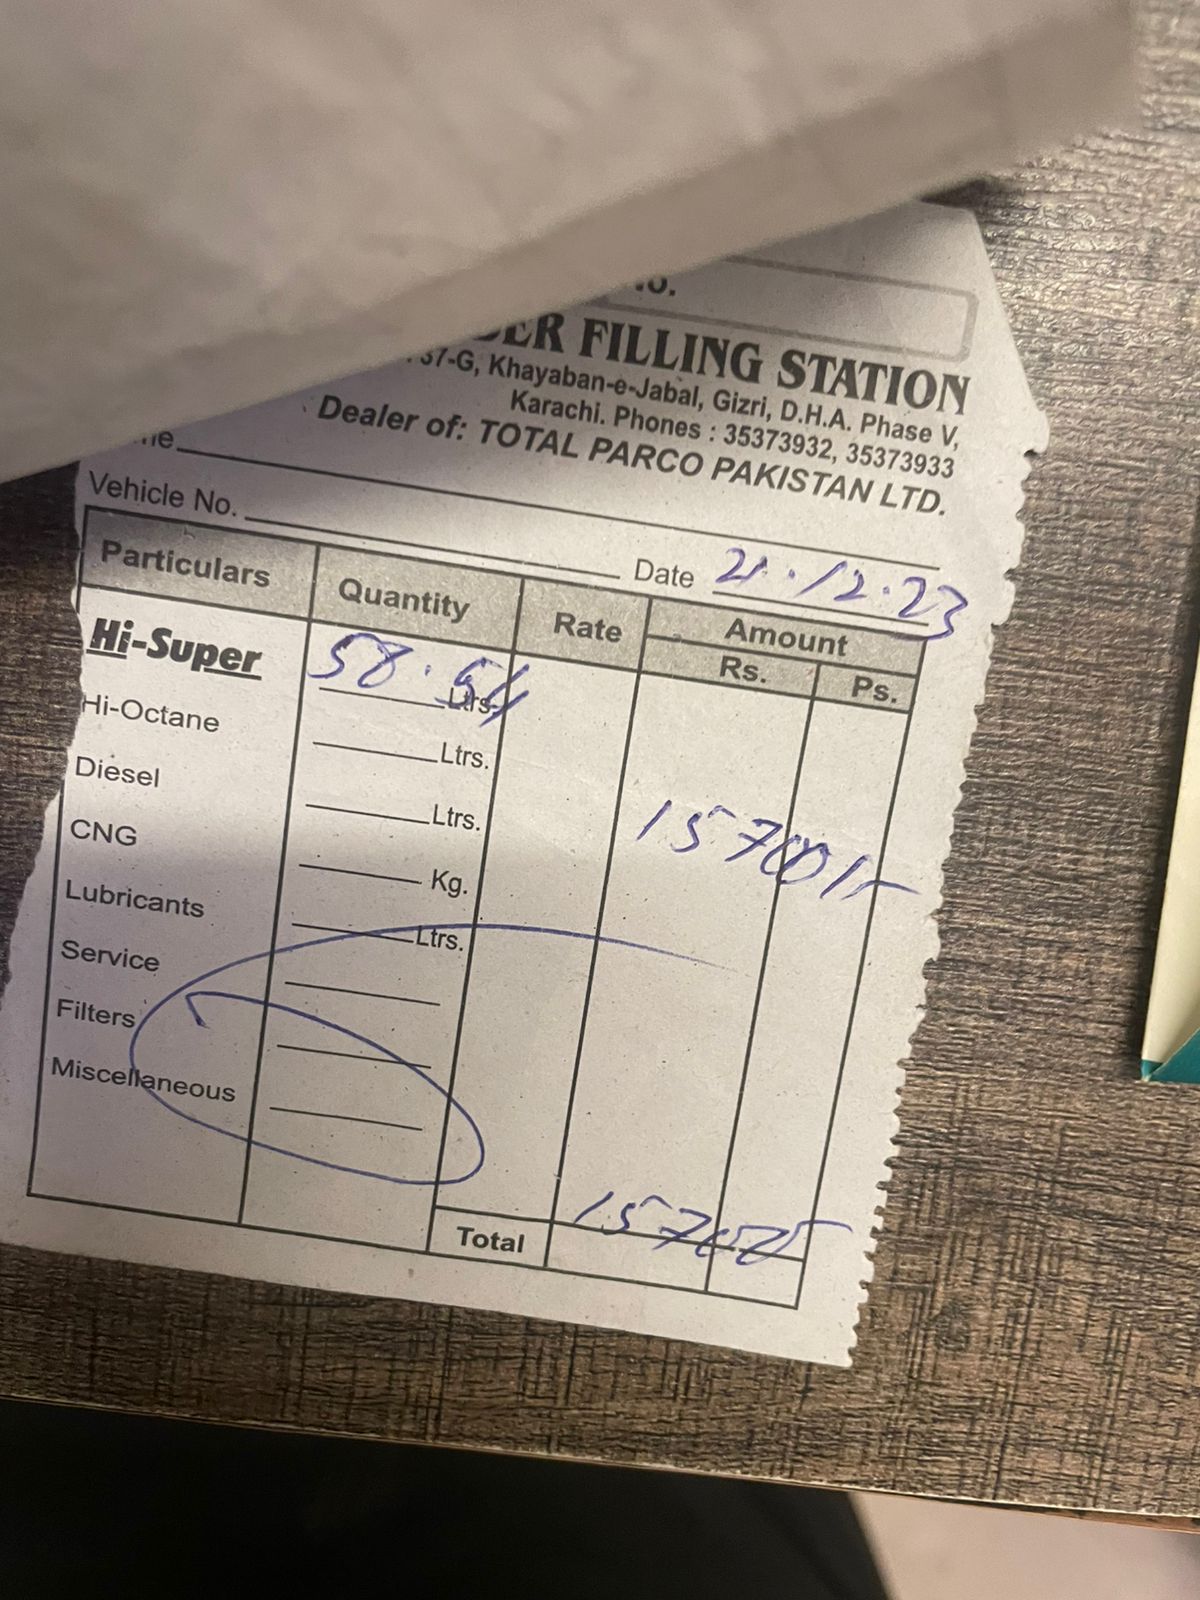 FILLING STATION
37-G, Khayaban-e-Jabal, Gizri, D.H.A. Phase V,
Karachi. Phones : 35373932, 35373933
Dealer of: TOTAL PARCO PAKISTAN LTD.
Vehicle No.
Date 21.12.23
Particulars Quantity Rate Amount
Rs. Ps.
Hi-Super 58.54 Ltrs.
Hi-Octane Ltrs.
Diesel Ltrs.
15700/-
CNG Kg.
Lubricants Ltrs.
Service
Filters
Miscellaneous
Total 15700/-